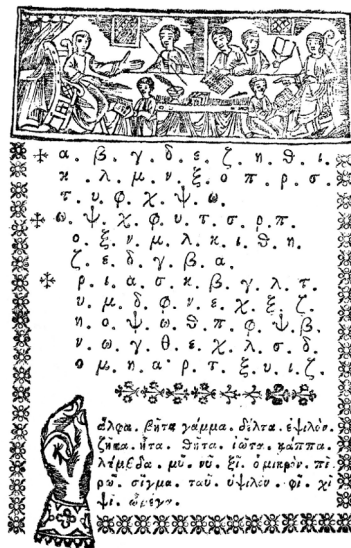 α. β. γ. δ. ε. ζ. η. θ. ι.
κ. λ. μ. ν. ξ. ο. π. ρ. σ.
τ. υ. φ. χ. ψ. ω.
ω. ψ. χ. φ. υ. τ. σ. ρ. π.
ο. ξ. ν. μ. λ. κ. ι. θ. η.
ζ. ε. δ. γ. β. α.
ρ. ι. α. σ. κ. β. γ. λ. τ.
υ. μ. δ. φ. ν. ε. χ. ξ. ζ.
η. ο. ψ. ω. θ. π. φ. ψ. β.
ν. ω. γ. θ. ε. χ. λ. σ. δ.
ο. μ. η. α. ρ. τ. ξ. υ. ι. ζ.
ἄλφα. βῆτα. γάμμα. δέλτα. ἐψιλόν.
ζῆτα. ἦτα. θῆτα. ἰῶτα. κάππα.
λάμβδα. μῦ. νῦ. ξῖ. ὀμικρόν. πῖ.
ρῶ. σίγμα. ταῦ. ὐψιλόν. φῖ. χῖ
ψῖ. ὠμέγα.